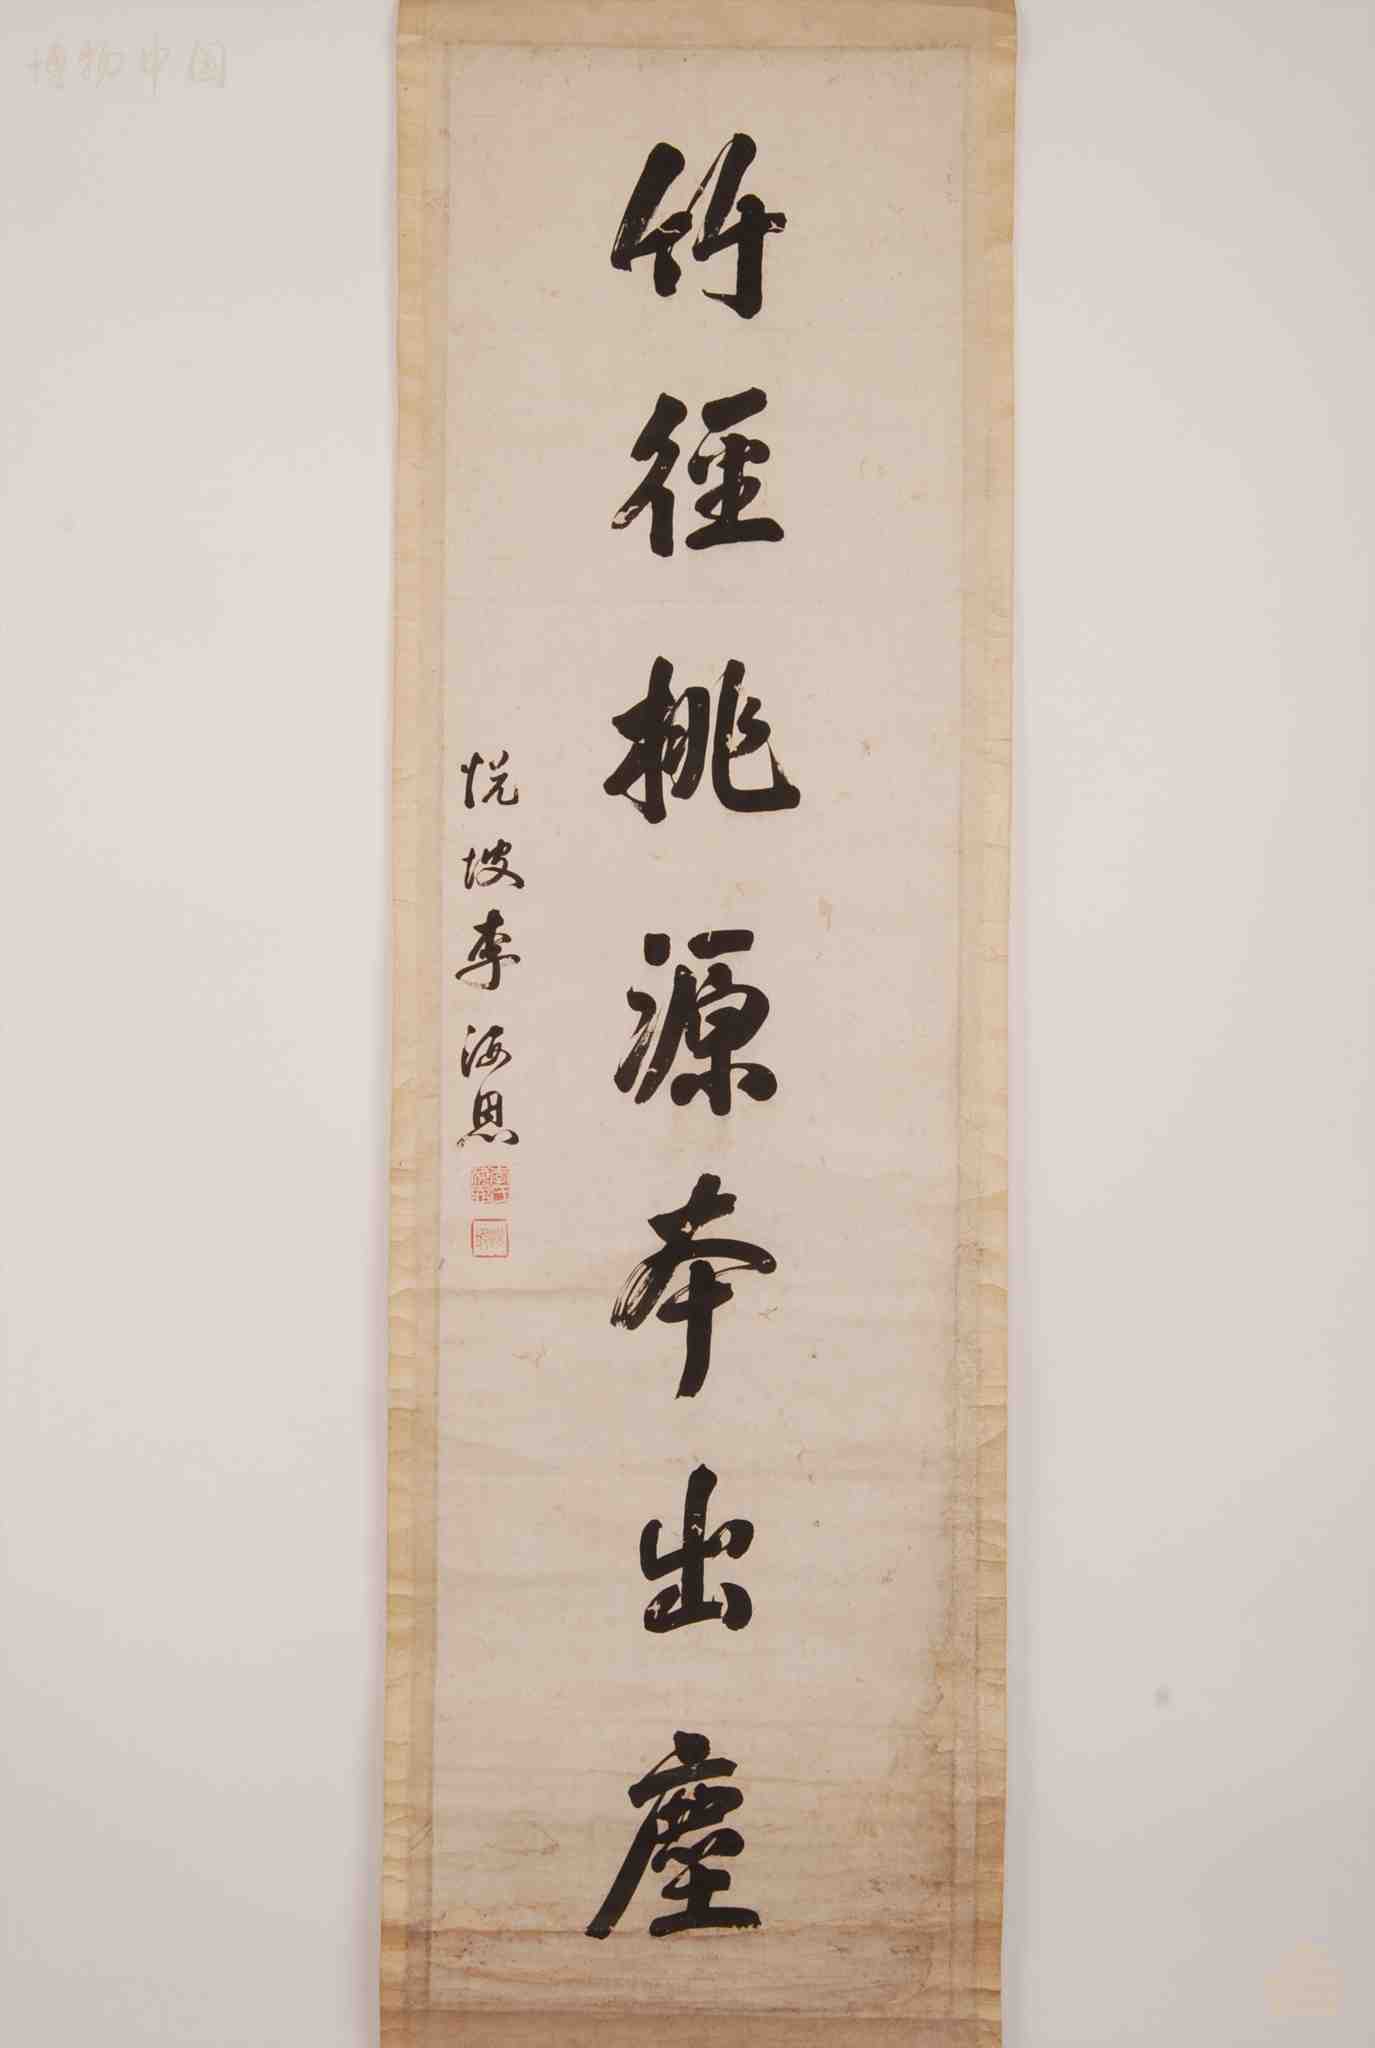 博物中国
竹徑桃源本出塵
悦坡李海恩